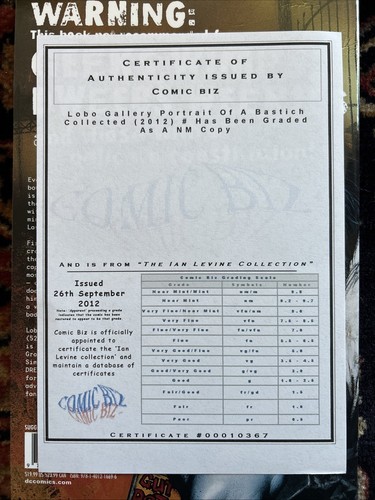 WARNING:
This book not recommended f
CERTIFICATE OF
AUTHENTICITY ISSUED BY
COMIC BIZ
Lobo Gallery Portrait Of A Bastich
Collected (2012) # Has Been Graded
As A NM Copy
COMIC BIZ
AND IS FROM "THE IAN LEVINE COLLECTION"
Issued
26th September
2012
Note: 'Apparent' preceeding a grade
indicates that the comic has been
restored to appear to be that grade
Comic Biz is officially
appointed to
certificate the 'Ian
Levine collection' and
maintain a database of
certificates
COMIC BIZ
Comic Biz Grading Scale
Grade Symbols Number
Near Mint/Mint nm/m 9.8
Near Mint nm 9.2 - 9.7
Very Fine/Near Mint vfn/nm 9.0
Very Fine vfn 7.5 - 8.5
Fine/Very Fine fn/vfn 7.0
Fine fn 5.5 - 6.5
Very Good/Fine vg/fn 5.0
Very Good vg 3.5 - 4.5
Good/Very Good g/vg 3.0
Good g
Fair/Good fr/gd 1.5
Fair fr 1.0
Poor pr 0.5
CERTIFICATE #00010367
$19.99 US $23.99 CAN ISBN: 978-1-4012-1669-6
dccomics.com